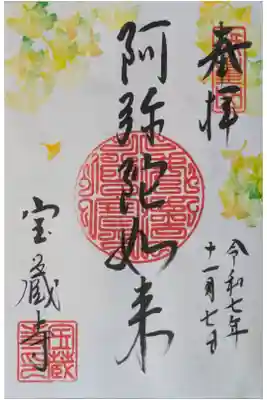 奉拝
令和七年
十一月七日
阿弥陀如来
宝蔵寺